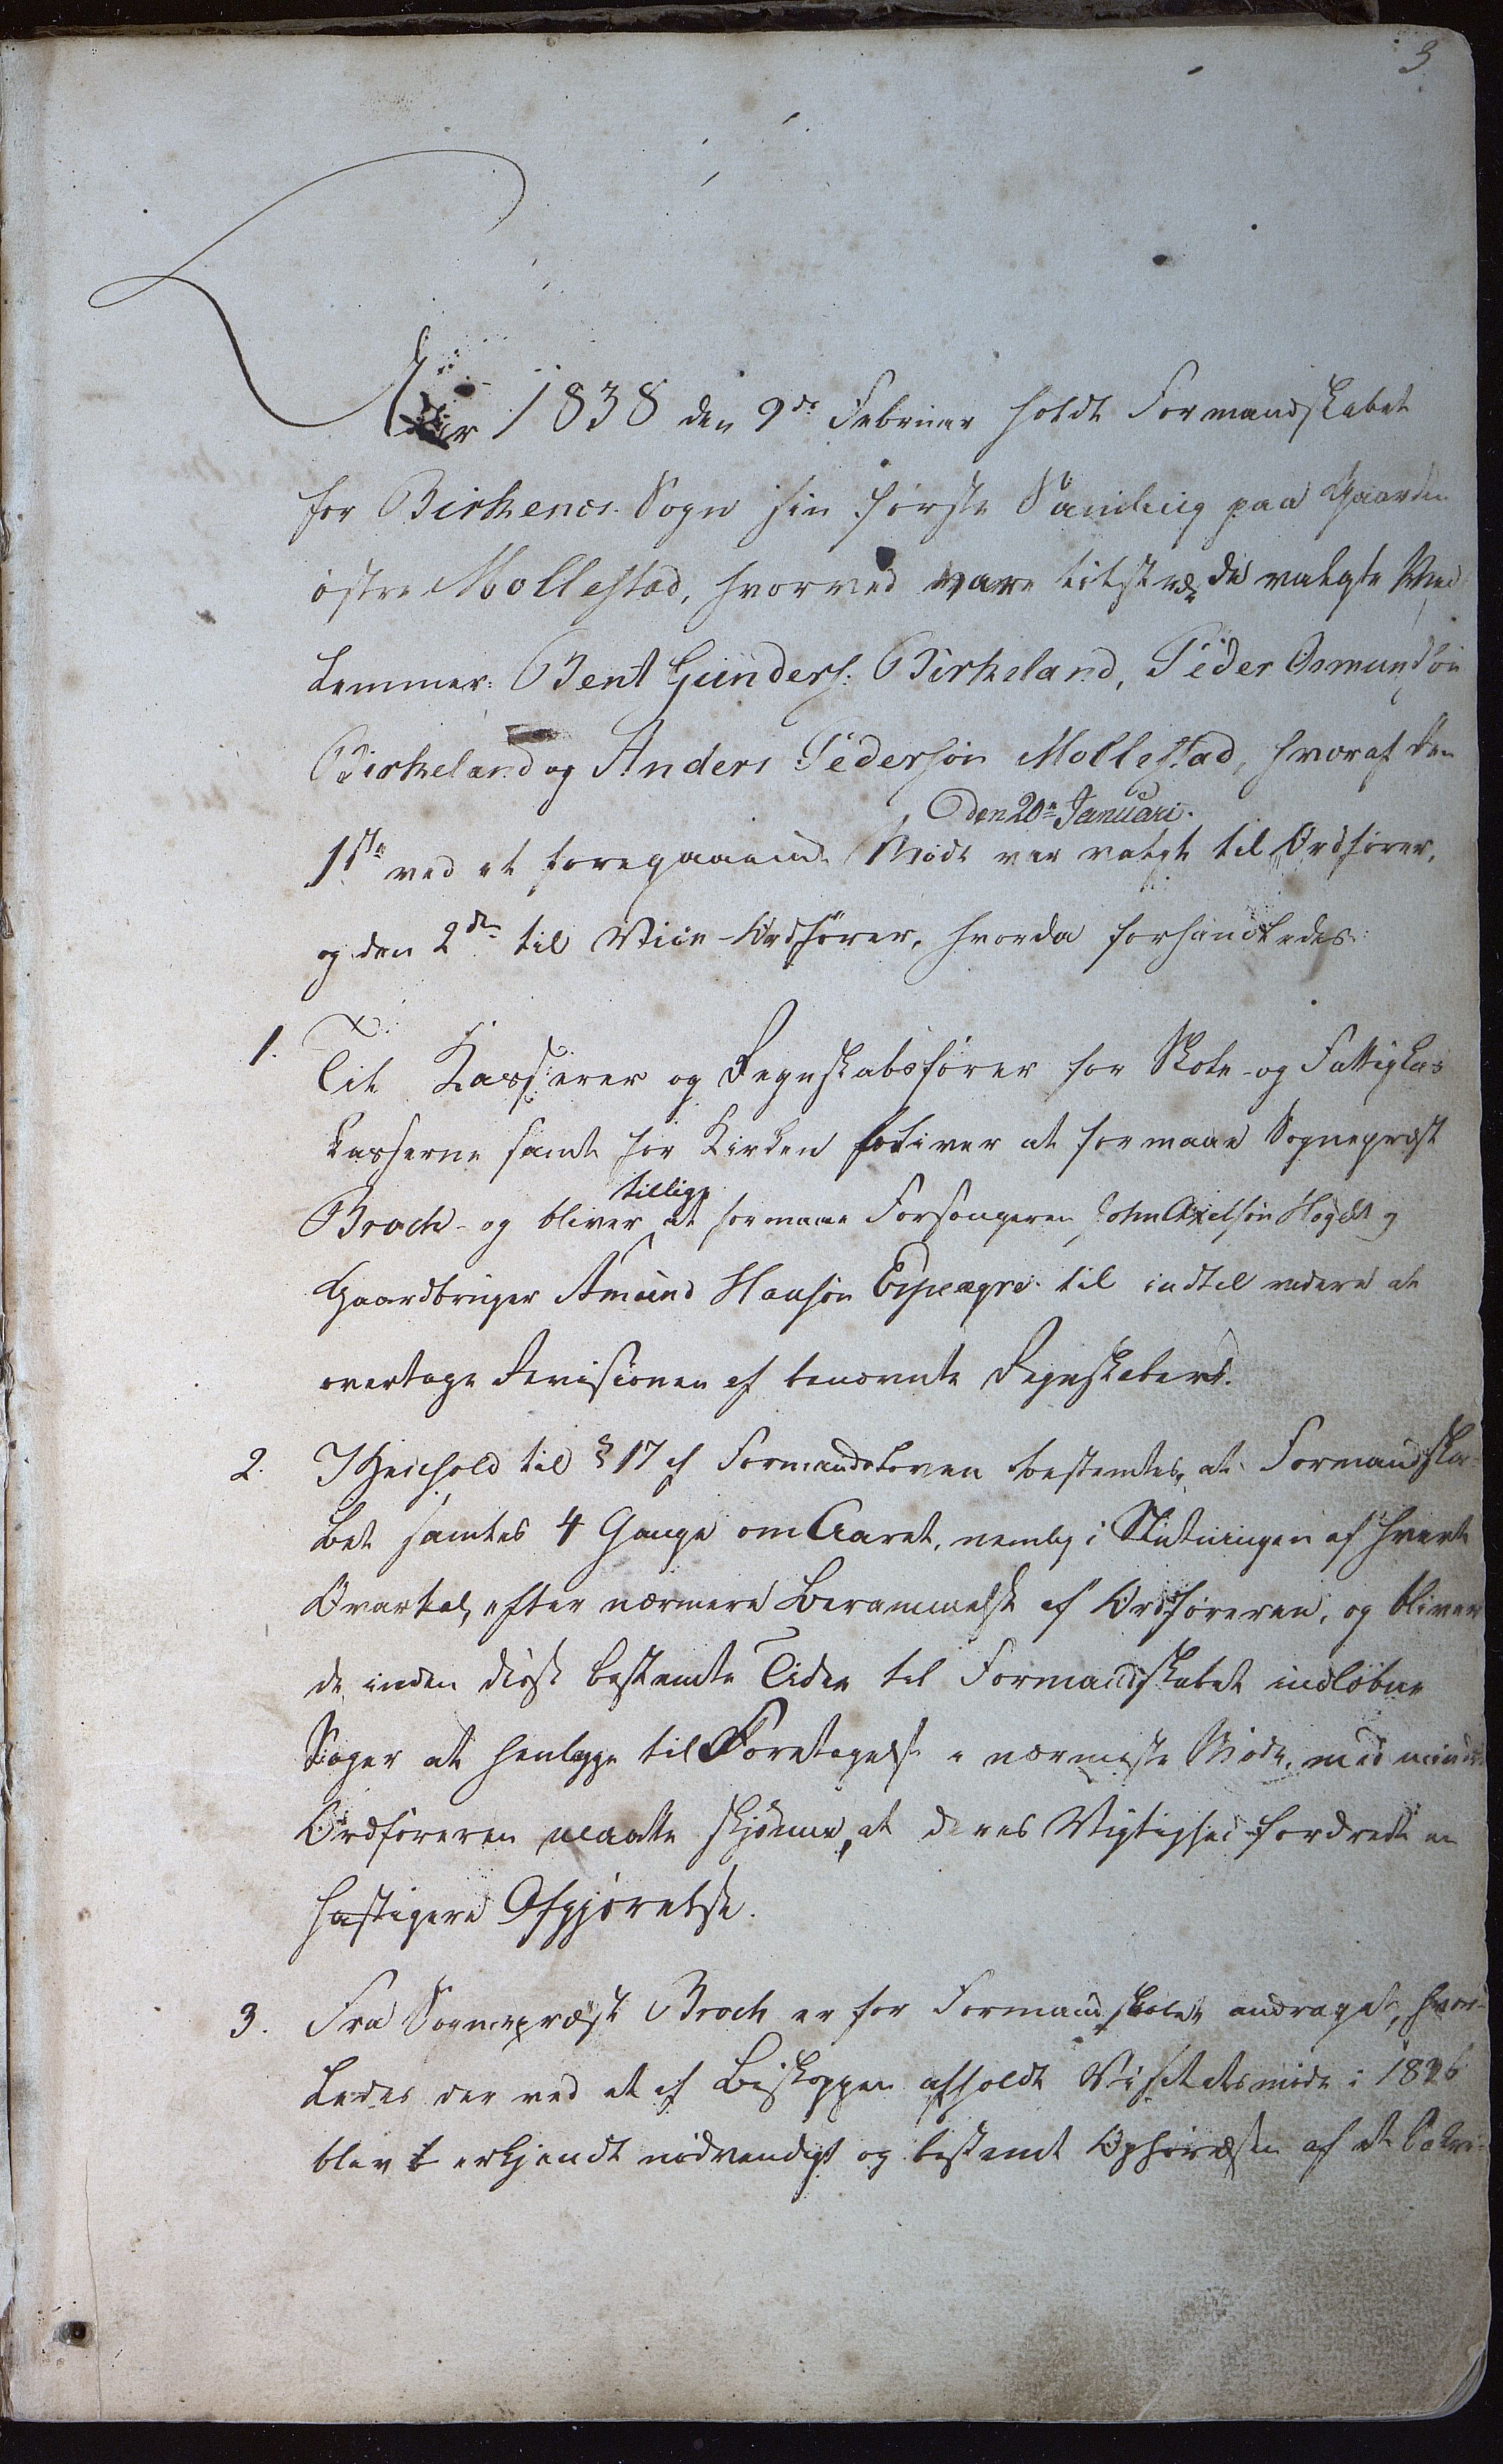 3
Aar 1838 den 9de Februar holdt Formandskabet
for Birkenes Sogn sin første Samling paa Gaarden
østre Mollestad, hvorved vare tilstæde de valgte Med
lemmer: Bent Gunders: Birkeland, Peder Osmundsøn
Birkeland og Anders Pedersøn Mollestad, hvoraf den
den 20n Januari.
1ste ved et foregaaende Møde var valgt til Ordfører,
og den 2den til Vice-Ordfører, hvorda forhandledes:
1. Til Kasserer og Regnskabsfører for Skole- og Fattig
kasserne samt for Kirken bliver at formaae Sognepræst
tillige
Broch og bliver at formaae Forsangeren John Axelsøn
Gaardbruger Amund Hansøn Espeagre til indtil videre at
overtage Revisionen af benævnte Regnskaber.
2. I Henhold til § 17 af Formandsloven bestemtes, at Formandska-
bet samles 4 Gange om Aaret, nemlig i Slutningen af hvert
Qvartal, efter nærmere Berammelse af Ordføreren, og bliver
de inden disse bestemte Tider til Formandskabet indløbne
Sager at henlægge til Foretagelse i nærmeste Møde, med mindre
Ordføreren maatte skjønne, at deres Vigtighed fordrede en
hastigere Afgjørelse.
3. Fra Sognepræst Broch er for Formandskabet andraget, hvor-
ledes der ved et af Biskoppen afholdt Visitatsmøde i 1836
blev erkjendt nødvendigt og bestemt Opførelsen af et Sakri-